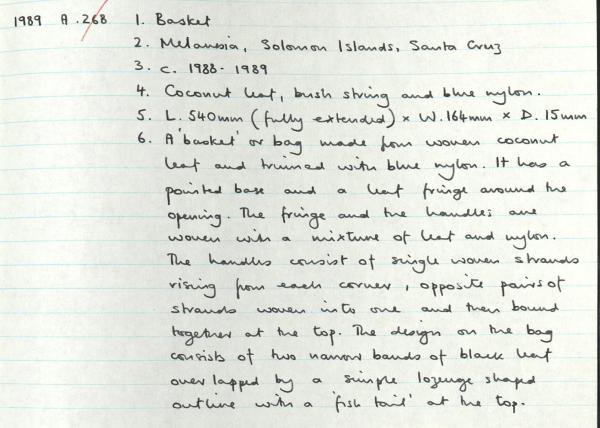 1989 A.268 1. Basket
2. Melanesia, Solomon Islands, Santa Cruz
3. c. 1988-1989
4. Coconut leaf, bush string and blue nylon.
5. L. 540mm (fully extended) × W. 164mm × D. 15mm
6. A 'basket' or bag made from woven coconut
leaf and trimmed with blue nylon. It has a
pointed base and a leaf fringe around the
opening. The fringe and the handles are
woven with a mixture of leaf and nylon.
The handles consist of single woven strands
rising from each corner, opposite pairs of
strands woven into one and then bound
together at the top. The design on the bag
consists of two narrow bands of black leaf
overlapped by a simple lozenge shaped
outline with a 'fish tail' at the top.